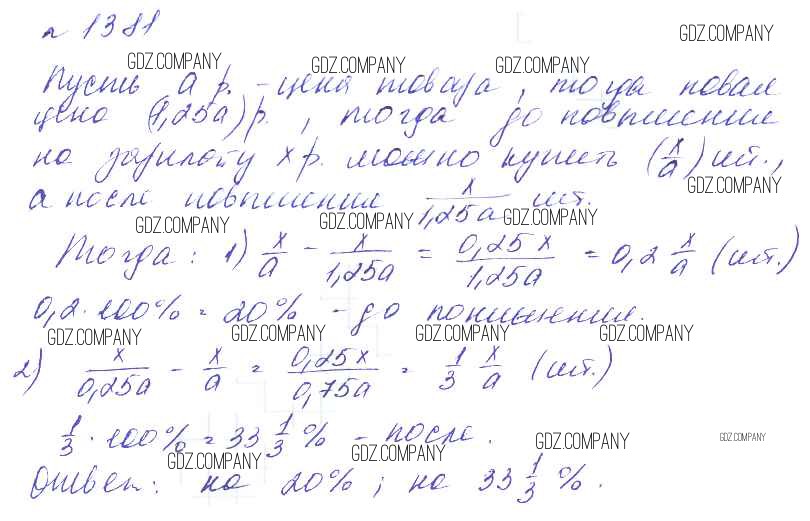 № 1381
GDZ.COMPANY
GDZ.COMPANY GDZ.COMPANY GDZ.COMPANY
Пусть a р. - цена товара, тогда новая
цена (1,25a) р., тогда до повышения
на зарплату x р. можно купить (x/a) шт.,
GDZ.COMPANY
а после повышения x/1,25a шт.
GDZ.COMPANY GDZ.COMPANY GDZ.COMPANY
Тогда: 1) x/a - x/1,25a = 0,25x/1,25a = 0,2 x/a (шт.)
0,2 · 100% = 20% - до понижения.
GDZ.COMPANY GDZ.COMPANY GDZ.COMPANY GDZ.COMPANY
2) x/0,25a - x/a = 0,25x/0,75a = 1/3 x/a (шт.)
1/3 · 100% = 33 1/3 % - после.
GDZ.COMPANY GDZ.COMPANY GDZ.COMPANY GDZ.COMPANY
Ответ: на 20%; на 33 1/3 %.